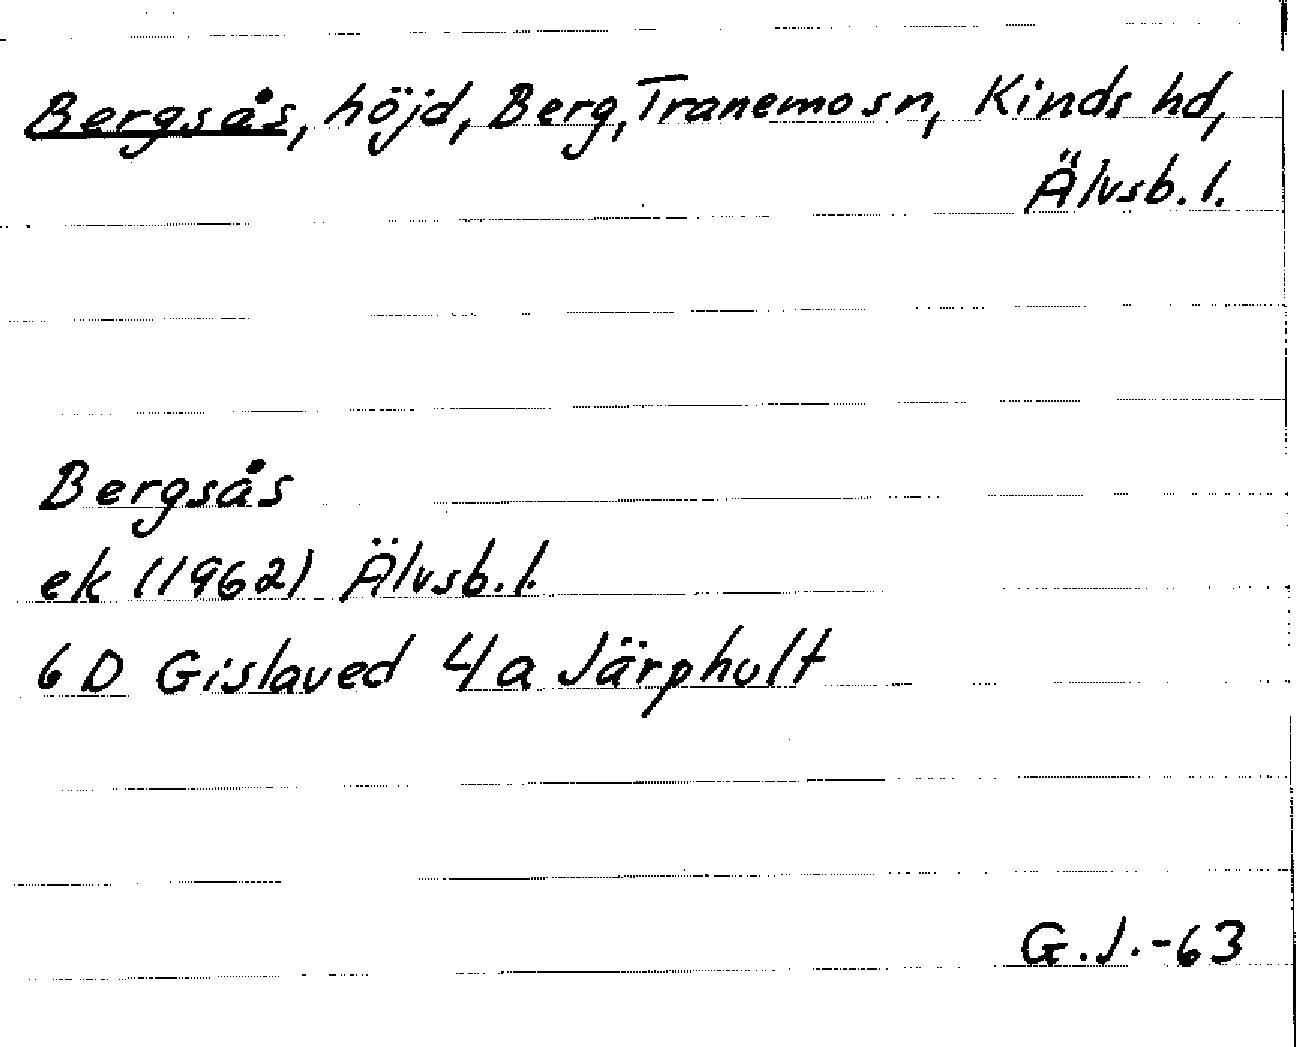 Bergsås, höjd, Berg, Tranemo sn, Kinds hd,
Älvsb. l.
Bergsås
ek (1962) Älvsb. l.
6 D Gislaved 4 a Järphult
G. J. -63